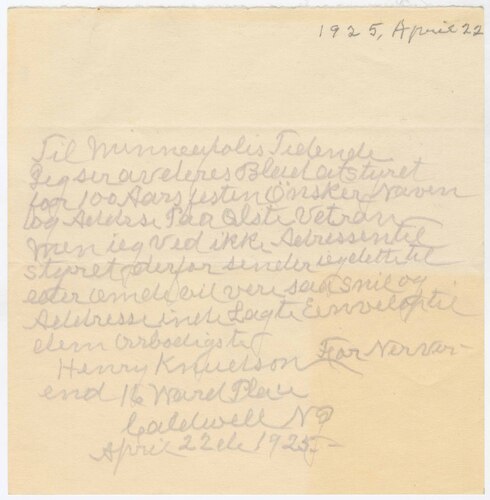 1925, April 22
Til Minneapolis Tidende
Jeg ser av deres Blad at Styret
for 100 Aars festen Ønsker Naven
og Address Paa Elste Vetran
Men jeg Ved ikke Adressen til
Styret derfor sender jeg dette til
eder om de vil vere saa Snil og
Addresse inde Lagte Eenvelop til
dem Ærbødigst
Henry Knudson For Nerver-
end 16 Ward Place
Caldwell NJ
April 22de 1925